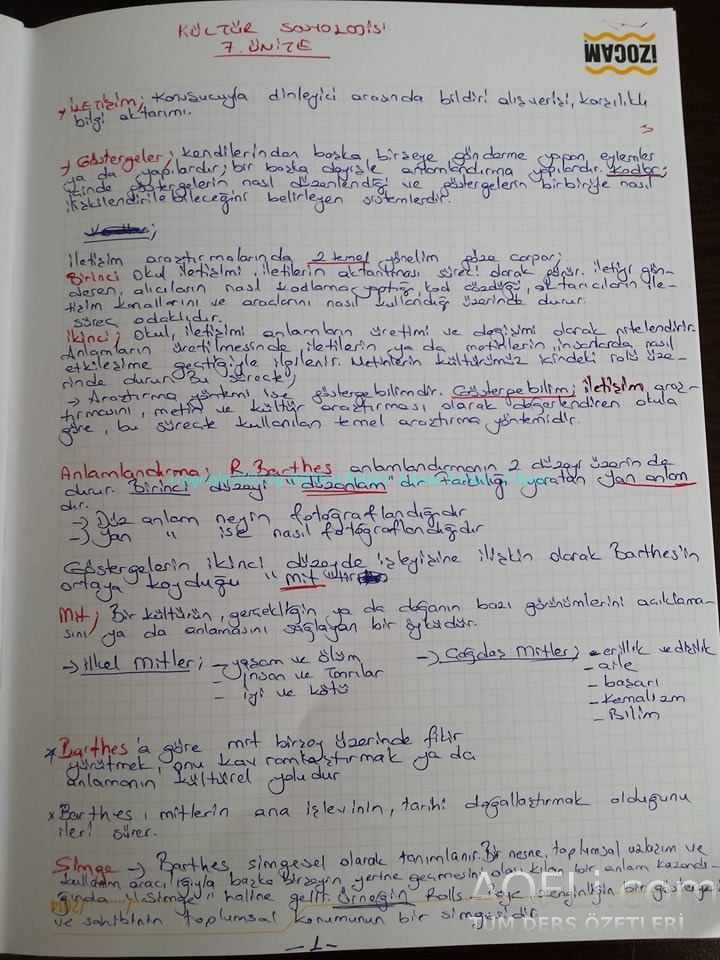 KÜLTÜR SOSYOLOJİSİ
7. ÜNİTE
İZOCAM
→ İLETİŞİM; Konuşucuyla dinleyici arasında bildiri alışverişi, karşılıklı
bilgi aktarımı.
→ Göstergeler; kendilerinden başka birşeye gönderme yapan, eylemler
ya da yapılardır; bir başka deyişle anlamlandırma yapılardır. Kodlar;
içinde göstergelerin nasıl düzenlendiği ve göstergelerin birbiriyle nasıl
ilişkilendirilebileceğini belirleyen sistemlerdir.
İletişim araştırmalarında 2 temel yönelim göze çarpar;
Birinci Okul iletişimi, iletilerin aktarılması süreci olarak görür. İletiyi gön-
deren, alıcıların nasıl kodlama yaptığı, kod açtığı, aktarıcıların ile-
tişim kanallarını ve araçlarını nasıl kullandığı üzerinde durur.
Süreç odaklıdır.
İkinci; Okul, iletişimi anlamların üretimi ve değişimi olarak nitelendirir.
Anlamların üretilmesinde iletilerin ya da metinlerin insanlarla nasıl
etkileşime geçtiğiyle ilgilenir. Metinlerin kültürümüz içindeki rolü üze-
rinde durur. Bu süreçte;
→ Araştırma yöntemi ise göstergebilimdir. Göstergebilim; iletişim araş-
tırmasını, metin ve kültür araştırması olarak değerlendiren okula
göre, bu süreçte kullanılan temel araştırma yöntemidir.
Anlamlandırma; R. Barthes anlamlandırmanın 2 düzeyi üzerinde
durur. Birinci düzeyi "düzanlam" dır farklılığı yaratan yan anlam
dır.
→ Düz anlam neyin fotoğraflandığıdır
→ Yan " ise nasıl fotoğraflandığıdır
Göstergelerin ikinci düzeyde işleyişine ilişkin olarak Barthes'in
ortaya koyduğu "mit" tir
Mit; Bir kültürün, gerçekliğin ya da doğanın bazı görünümlerini açıklama-
sını ya da anlamasını sağlayan bir öyküdür.
→ İlkel Mitler; - yaşam ve ölüm
- insan ve Tanrılar
- iyi ve kötü
→ Çağdaş Mitler; - erillik ve dişilik
- aile
- başarı
- Kemalizm
- Bilim
* Barthes'a göre mit birşey üzerinde fikir
yürütmek, onu kavramlaştırmak ya da
anlamanın kültürel yoludur
* Barthes, mitlerin ana işlevinin, tarihi doğallaştırmak olduğunu
ileri sürer.
Simge → Barthes simgesel olarak tanımlanır. Bir nesne, toplumsal uzlaşım ve
kullanım aracılığıyla başka birşeyin yerine geçmesini olası kılan bir anlam kazandı-
ğında "simge" haline gelir. Örneğin Rolls zenginliğin bir göstergesi
ve sahibinin toplumsal konumunun bir simgesidir.
AOFLi.com
TÜM DERS ÖZETLERİ
-1-